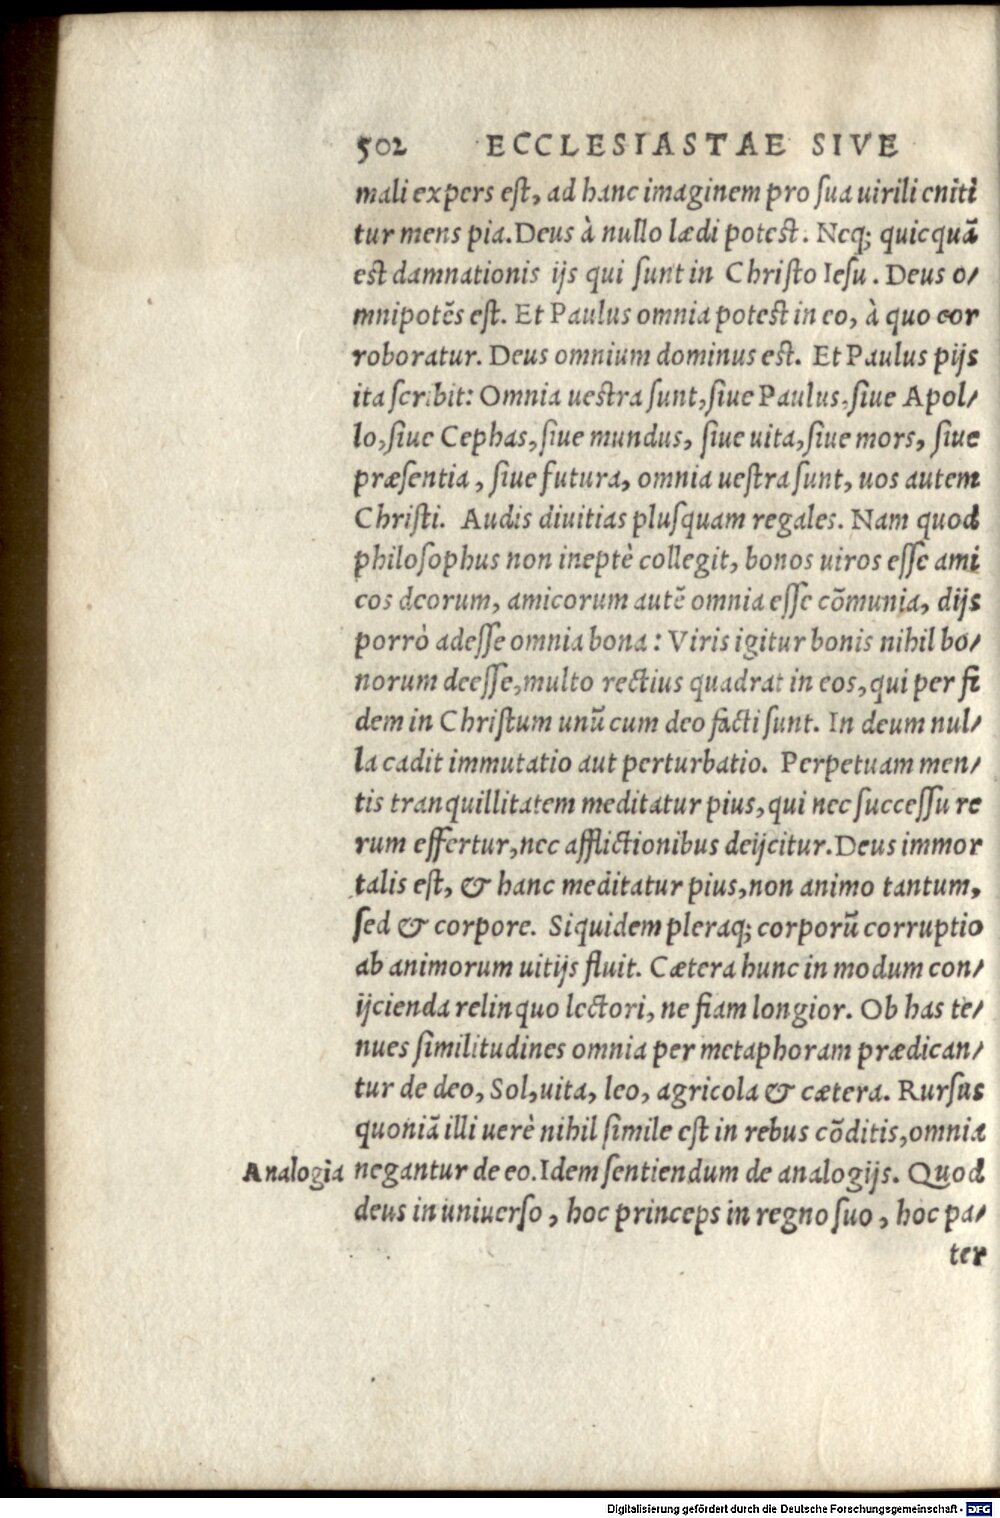 502 ECCLESIASTAE SIVE
mali expers est, ad hanc imaginem pro sua uirili eniti
tur mens pia. Deus à nullo lædi potest. Neq; quicquā
est damnationis ijs qui sunt in Christo Iesu. Deus o/
mnipotēs est. Et Paulus omnia potest in eo, à quo cor
roboratur. Deus omnium dominus est. Et Paulus pijs
ita scribit: Omnia uestra sunt, siue Paulus, siue Apol/
lo, siue Cephas, siue mundus, siue uita, siue mors, siue
præsentia, siue futura, omnia uestra sunt, uos autem
Christi. Audis diuitias plusquam regales. Nam quod
philosophus non ineptè collegit, bonos uiros esse ami
cos deorum, amicorum autē omnia esse cōmunia, dijs
porrò adesse omnia bona: Viris igitur bonis nihil bo/
norum deesse, multo rectius quadrat in eos, qui per fi
dem in Christum unū cum deo facti sunt. In deum nul/
la cadit immutatio aut perturbatio. Perpetuam men/
tis tranquillitatem meditatur pius, qui nec successu re
rum effertur, nec afflictionibus deijcitur. Deus immor
talis est, & hanc meditatur pius, non animo tantum,
sed & corpore. Siquidem pleraq; corporū corruptio
ab animorum uitijs fluit. Cætera hunc in modum con/
ijcienda relinquo lectori, ne fiam longior. Ob has te/
nues similitudines omnia per metaphoram prædican/
tur de deo, Sol, uita, leo, agricola & cætera. Rursus
quoniā illi uerè nihil simile est in rebus cōditis, omnia
Analogia negantur de eo. Idem sentiendum de analogijs. Quod
deus in uniuerso, hoc princeps in regno suo, hoc pa/
ter
Digitalisierung gefördert durch die Deutsche Forschungsgemeinschaft - DFG